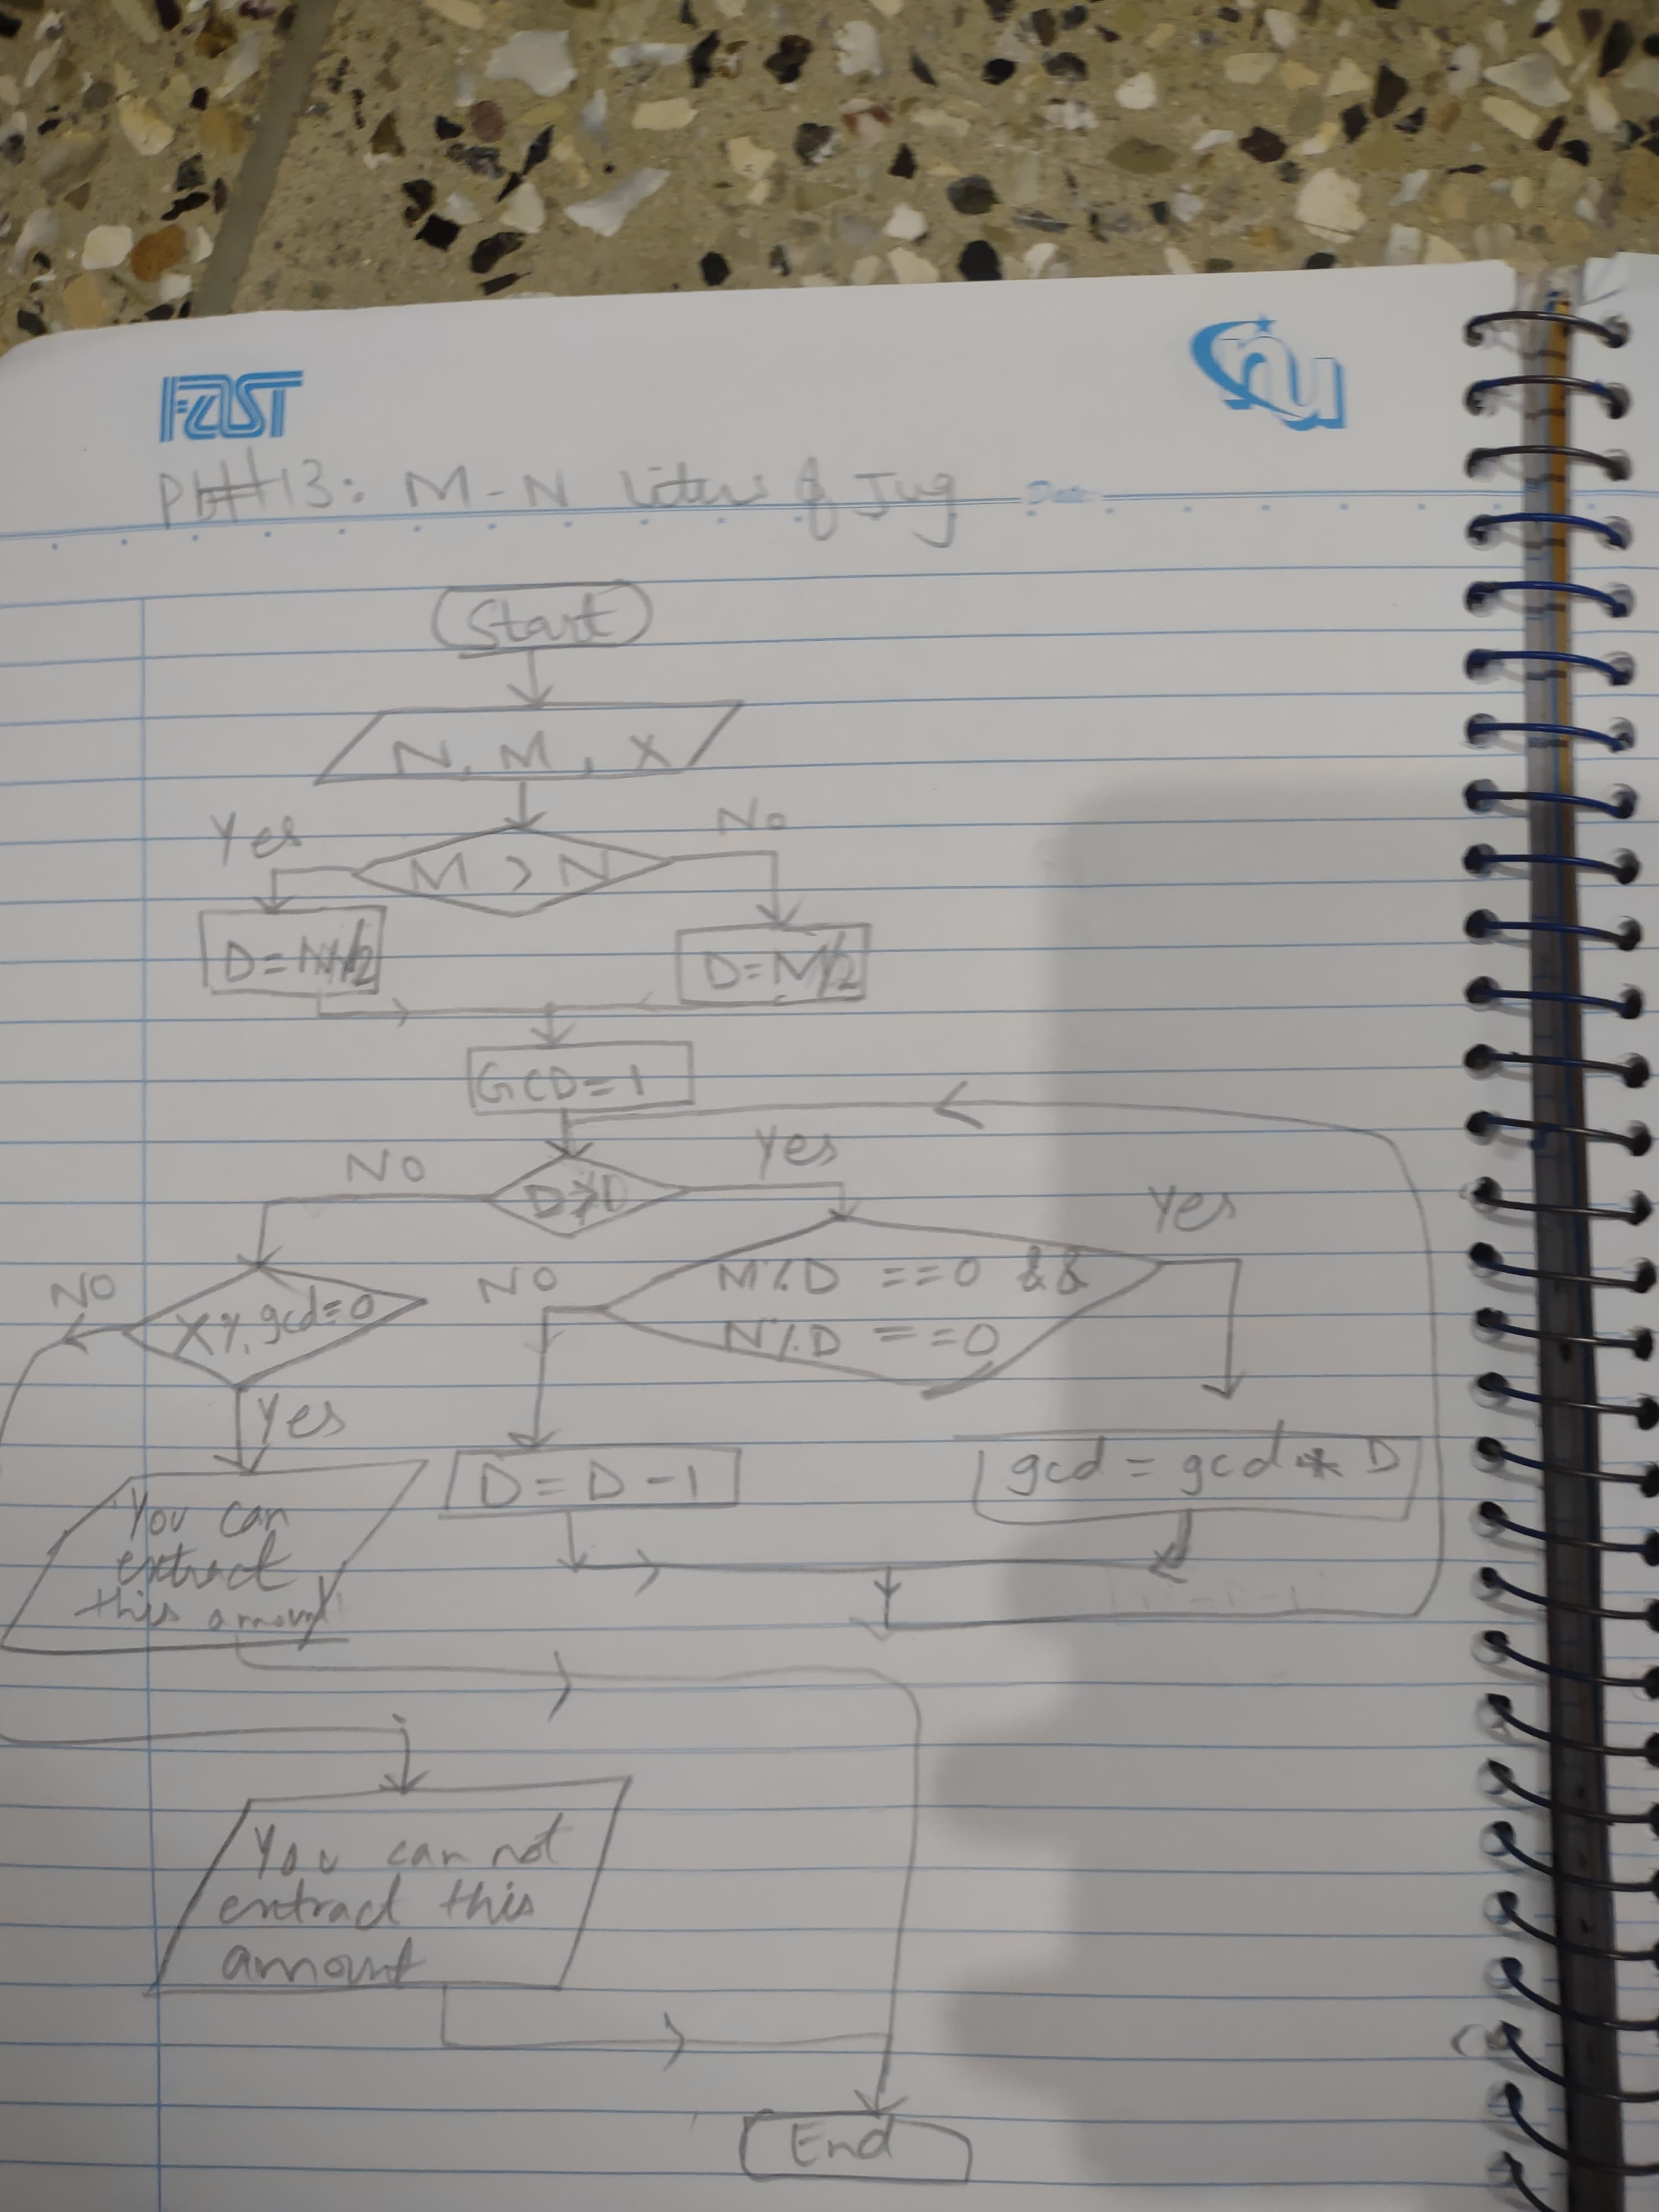 FAST
nu
Date
M-N liters of Jug
Start
N, M, X
Yes
No
M > N
GCD=1
No
Yes
Yes
NO
NO
M%D ==0 &&
N%D ==0
X%gcd=0
Yes
D=D-1
gcd = gcd * D
You can
extract
this amount
You can not
extract this
amount
End